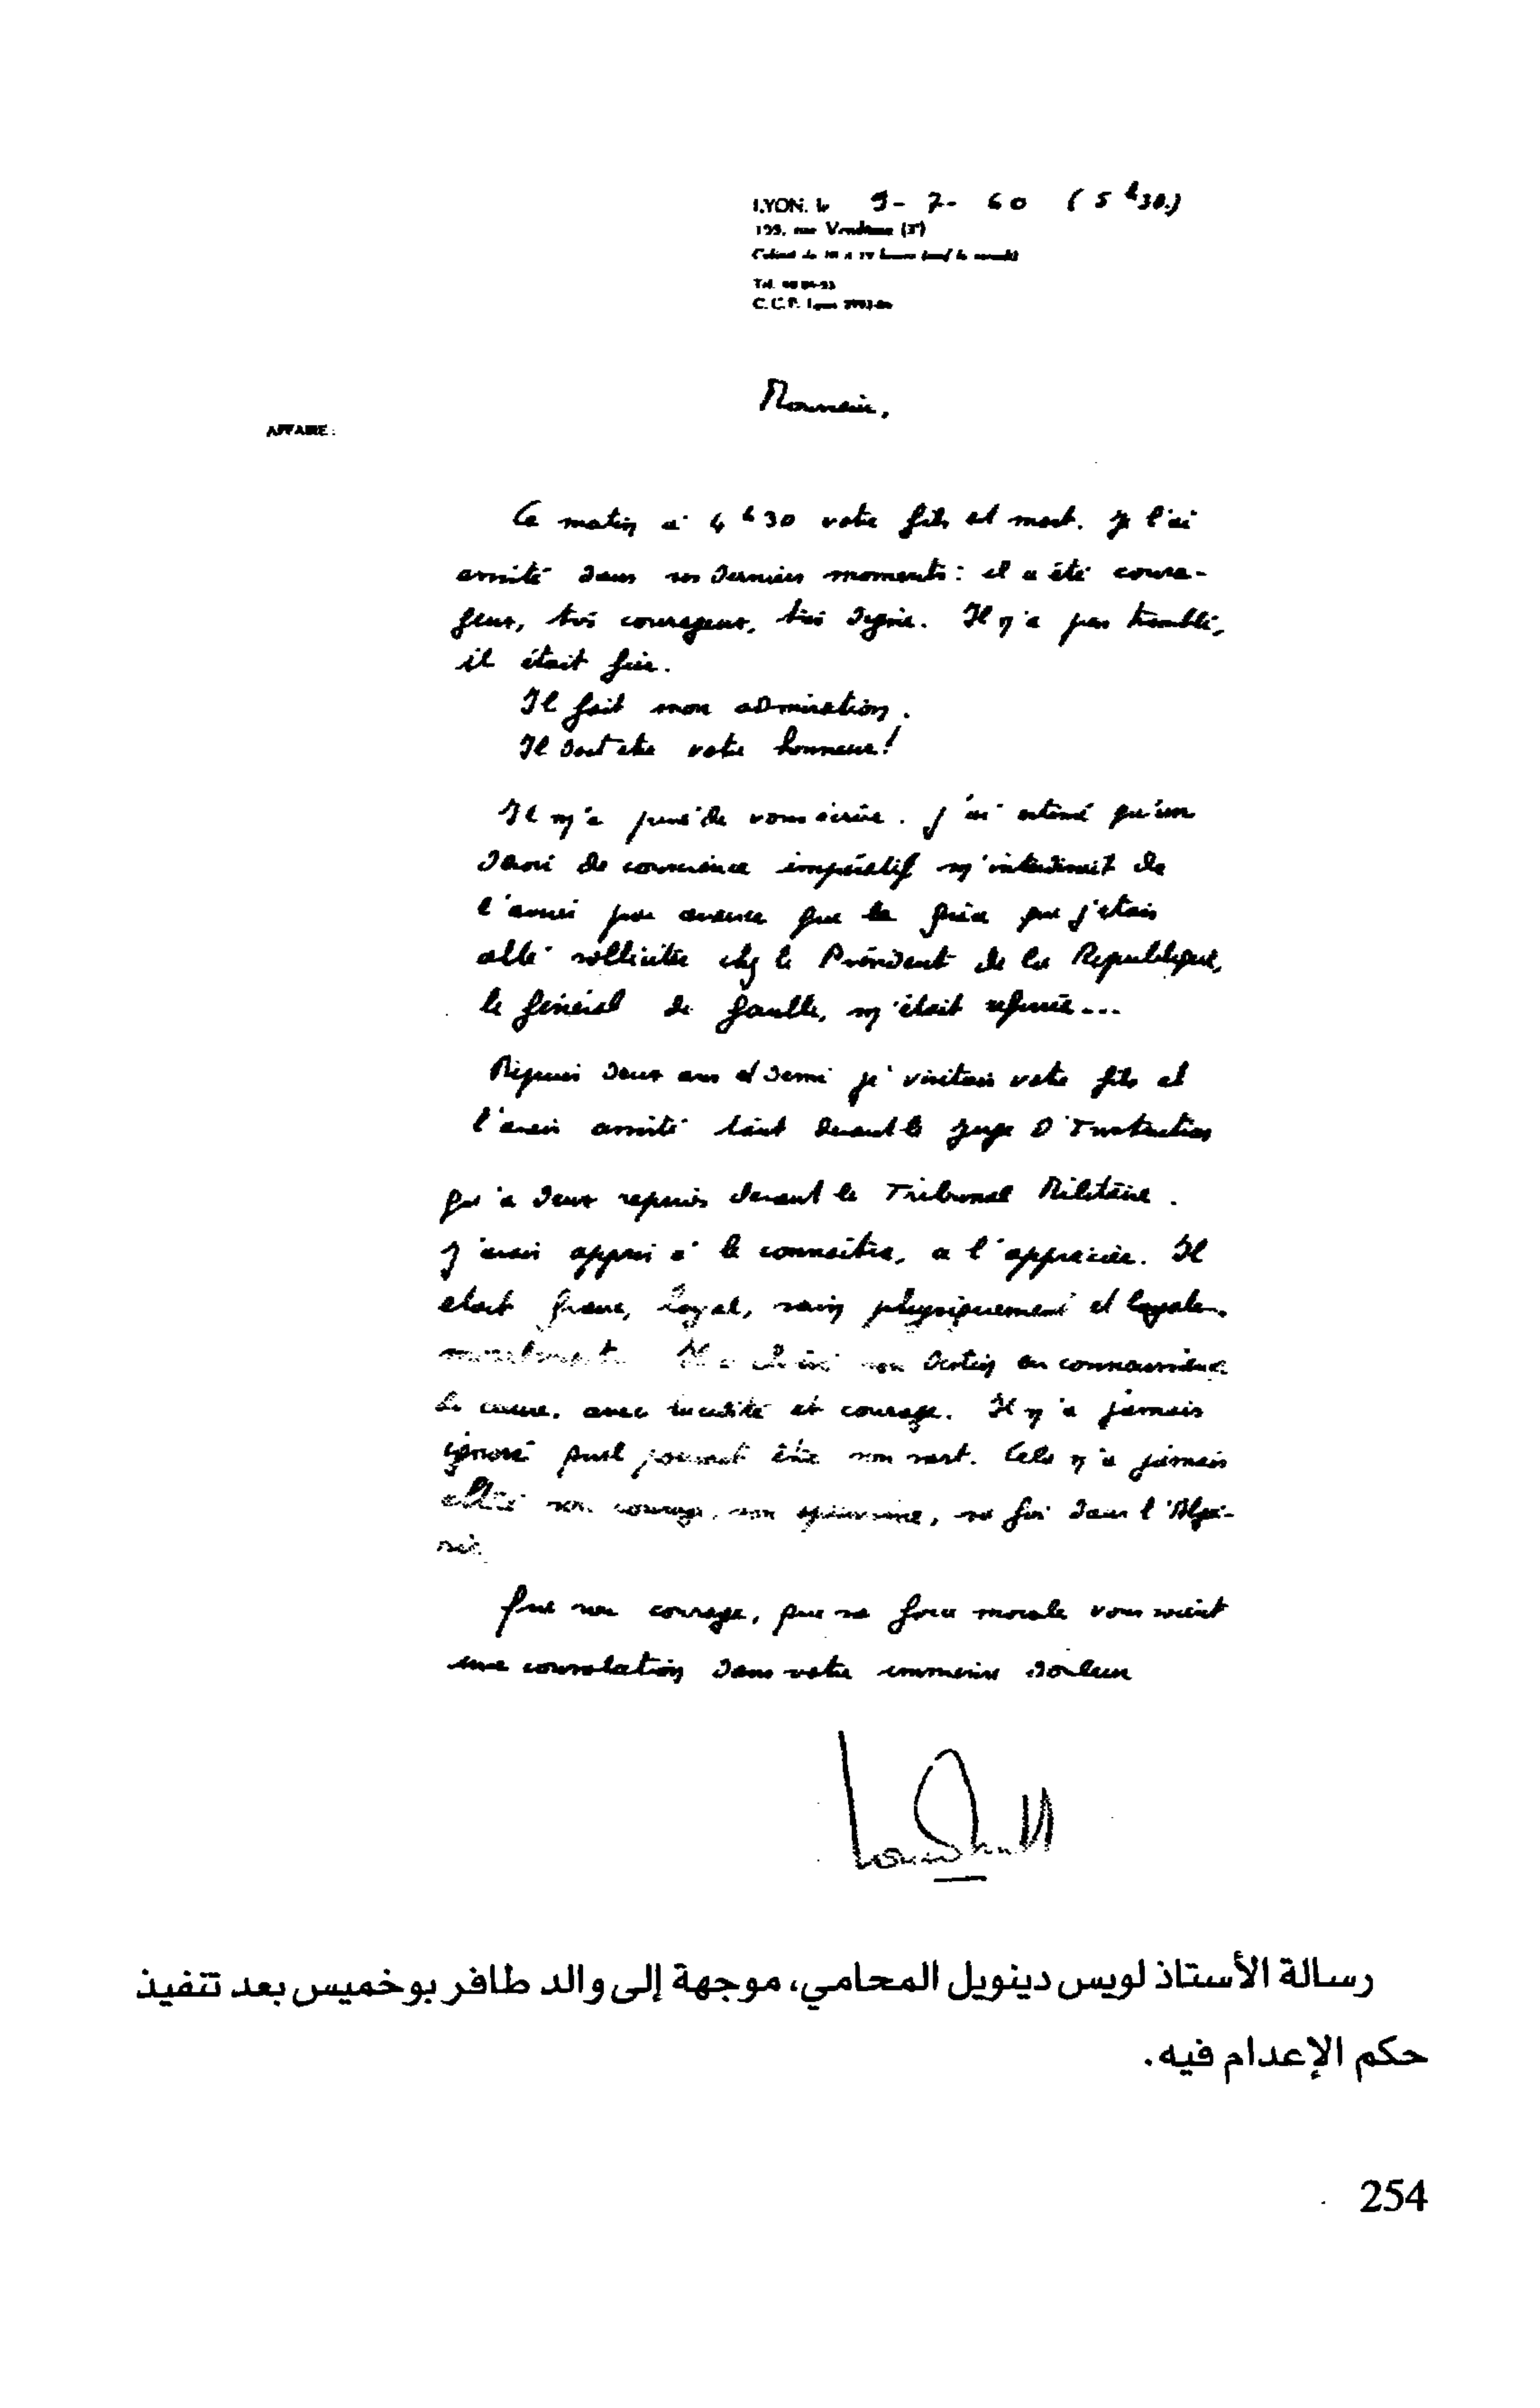 LYON, le 9-7-60 (5 h 30.)
199, rue Vendôme (3e)
Tél.
C.C.P. Lyon
Monsieur,
AFFAIRE :
Ce matin à 4 h 30 votre fils est mort. Je l'ai
assisté dans ses derniers moments : il a été coura-
geux, très courageux, très digne. Il n'a pas tremblé,
il était fier.
Il fait mon admiration.
Il doit être votre honneur !
Il m'a prié de vous écrire. J'ai estimé qu'un
devoir de conscience impératif m'interdisait de
l'aviser par avance que la grâce que j'étais
allé solliciter chez le Président de la République,
le général de Gaulle, m'était refusée...
Depuis deux ans et demi je visitais votre fils et
l'avais assisté tant devant le Juge d'Instruction
qu'à deux reprises devant le Tribunal Militaire.
J'avais appris à le connaître, a l'apprécier. Il
etait franc, loyal, sain physiquement et
moralement. Il a choisi son destin en connaissance
de cause, avec lucidité et courage. Il n'a jamais
ignoré quel pourrait être son sort. Cela n'a jamais
altéré son courage, son espérance, sa foi dans l'Algé-
rie.
Que son courage, que sa force morale vous soient
une consolation dans votre immense douleur
رسالة الأستاذ لويس دينويل المحامي، موجهة إلى والد طافر بوخميس بعد تنفيذ
حكم الإعدام فيه.
254